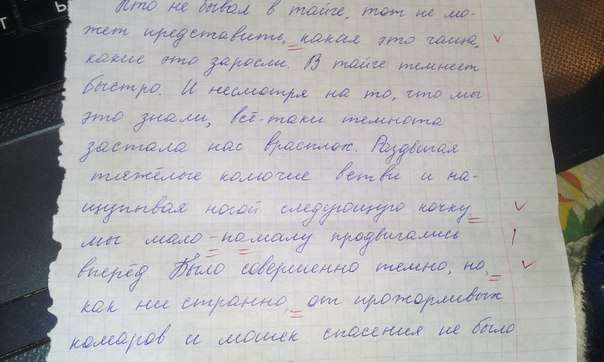 Кто не бывал в тайге, тот не мо-
жет представить, какая это чаща,
какие это заросли. В тайге темнеет
быстро. И несмотря на то, что мы
это знали, всё-таки темнота
застала нас врасплох. Раздвигая
тяжёлые колючие ветви и на-
щупывая ногой следующую кочку
мы мало-помалу продвигались
вперёд Было совершенно темно, но,
как ни странно, от прожорливых
комаров и мошек спасения не было